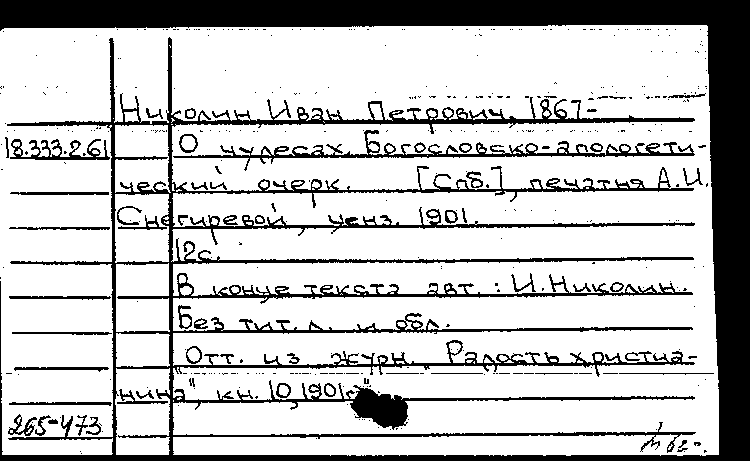 Николин, Иван Петрович, 1867-
18.333.2.61
О чудесах. Богословско-апологети-
ческий очерк. [Спб.], печатня А.И.
Снегиревой, ценз. 1901.
12с.
В конце текста авт.: И.Николин.
Без тит.л. и обл.
"Отт. из журн. "Радость христиа-
нина", кн. 10, 1901г."
265-473